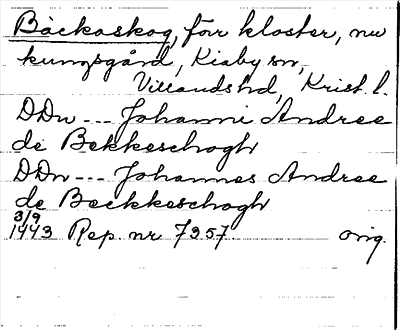 Bäckaskog, förr kloster, nu
kungsgård, Kiaby sn,
Villandshd, Krist. l.
DDn --- Johanni Andree
de Bekkeschogh
DDn --- Johannes Andree
de Beckkeschogh
3/9
1443 Rep. nr 7357 orig.